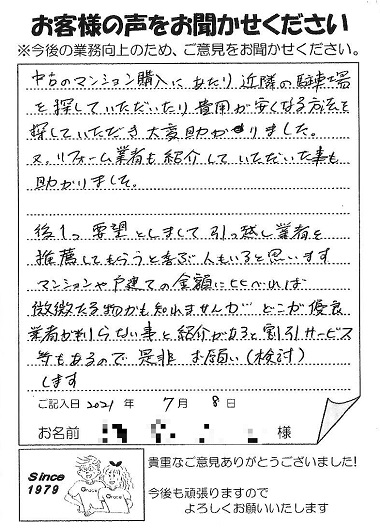 お客様の声をお聞かせください
※今後の業務向上のため、ご意見をお聞かせください。
中古のマンション購入にあたり近隣の駐車場
を探していただいたり費用が安くなる方法を
探していただき大変助かりました。
又、リフォーム業者も紹介していただいた事も
助かりました。
後1つ要望としまして引っ越し業者を
推薦してもらうと喜ぶ人もいると思います
マンションや戸建ての金額に比べれば
微微たる物かも知れませんが どこが優良
業者か判らない事と紹介があると割引サービス
等もあるので是非お願い(検討)
します
ご記入日 2021 年 7 月 8 日
お名前 様
Since
1979
Grace
Grace
貴重なご意見ありがとうございました!
今後も頑張りますので
よろしくお願いいたします